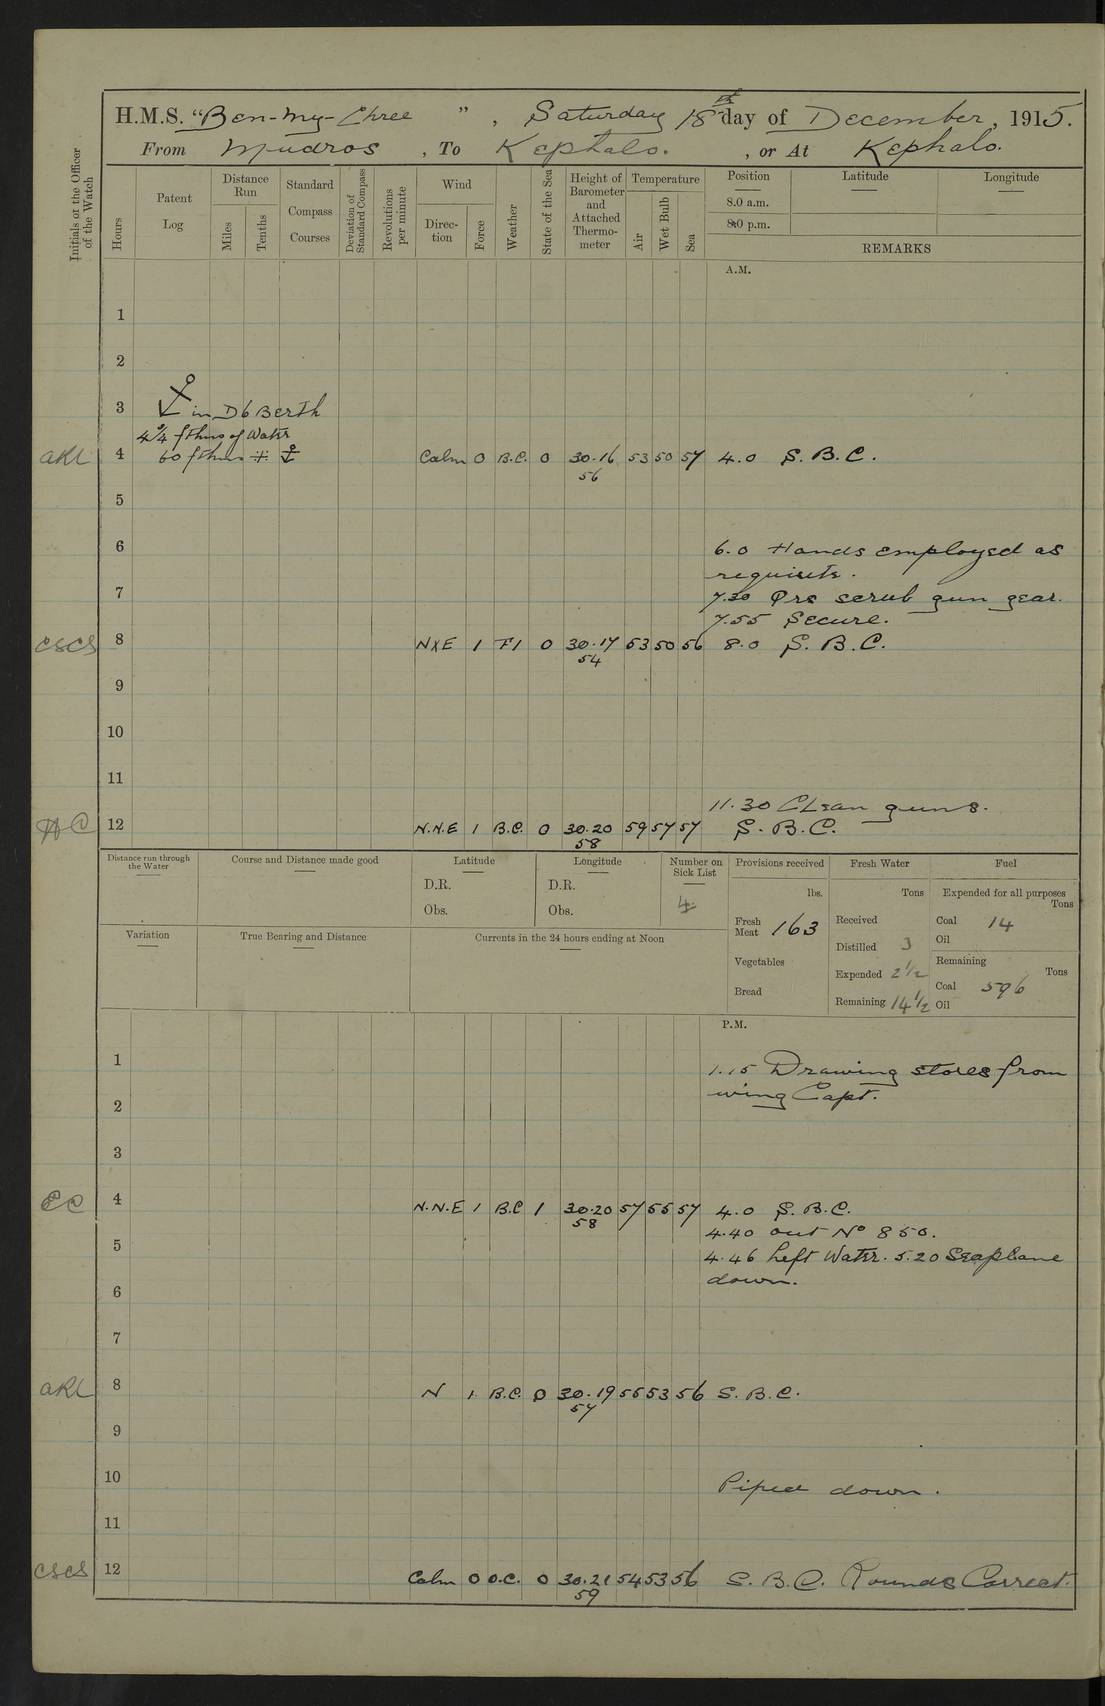 H.M.S. "Ben-My-Chree", Saturday 18th day of December, 1915.
From Mudros, To Kephalo., or At Kephalo.
Initials of the Officer of the Watch
Hours
Patent Log
Distance Run
Miles
Tenths
Standard Compass Courses
Deviation of Standard Compass
Revolutions per minute
Wind
Direction
Force
Weather
State of the Sea
Height of Barometer and Attached Thermometer
Temperature
Air
Wet Bulb
Sea
Position
8.0 a.m.
8.0 p.m.
Latitude
Longitude
REMARKS
A.M.
1
2
3 in D6 Berth
4¾ fthms of Water
ARL 4 60 fthms Calm 0 B.C. 0 30.16 53 50 57 4.0 S.B.C.
56
5
6 6.0 Hands employed as
requisite.
7 7.30 Qrs scrub gun gear.
7.55 Secure.
CSCS 8 NXE 1 F1 0 30.17 53 50 56 8.0 S.B.C.
54
9
10
11
11.30 Clean guns.
12 N.N.E 1 B.C. 0 30.20 59 57 57 S.B.C.
58
Distance run through the Water
Course and Distance made good
Latitude
D.R.
Obs.
Longitude
D.R.
Obs.
Number on Sick List
4
Provisions received
lbs.
Fresh Meat 163
Vegetables
Bread
Fresh Water
Tons
Received
Distilled 3
Expended 2½
Remaining 14½
Fuel
Expended for all purposes
Tons
Coal 14
Oil
Remaining
Tons
Coal 596
Oil
Variation
True Bearing and Distance
Currents in the 24 hours ending at Noon
P.M.
1 1.15 Drawing stores from
wing Capt.
2
3
EC 4 N.N.E 1 B.C 1 30.20 57 55 57 4.0 S.B.C.
58
4.40 out No 850.
5 4.46 Left Water. 5.20 Seaplane
down.
6
7
ARL 8 N 1 B.C. 0 30.19 55 53 56 S.B.C.
57
9
10 Piped down.
11
CSCS 12 Calm 0 O.C. 0 30.21 54 53 56 S.B.C. Rounds Correct.
59